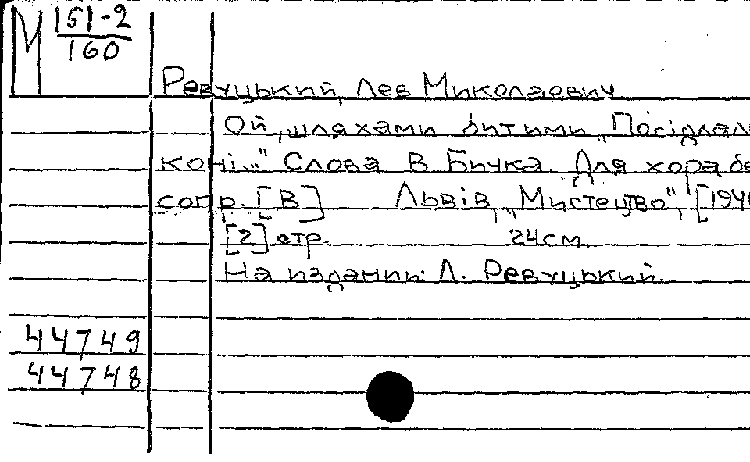 М 151-2
160
Ревуцький, Лев Миколаевич
Ой, шляхами битими „Посідлали
коні..." Слова В. Бичка. Для хора без
сопр. [В] Львів, „Мистецво", [194
[2] стр. 24см.
На издании: Л. Ревуцький.
44749
44748